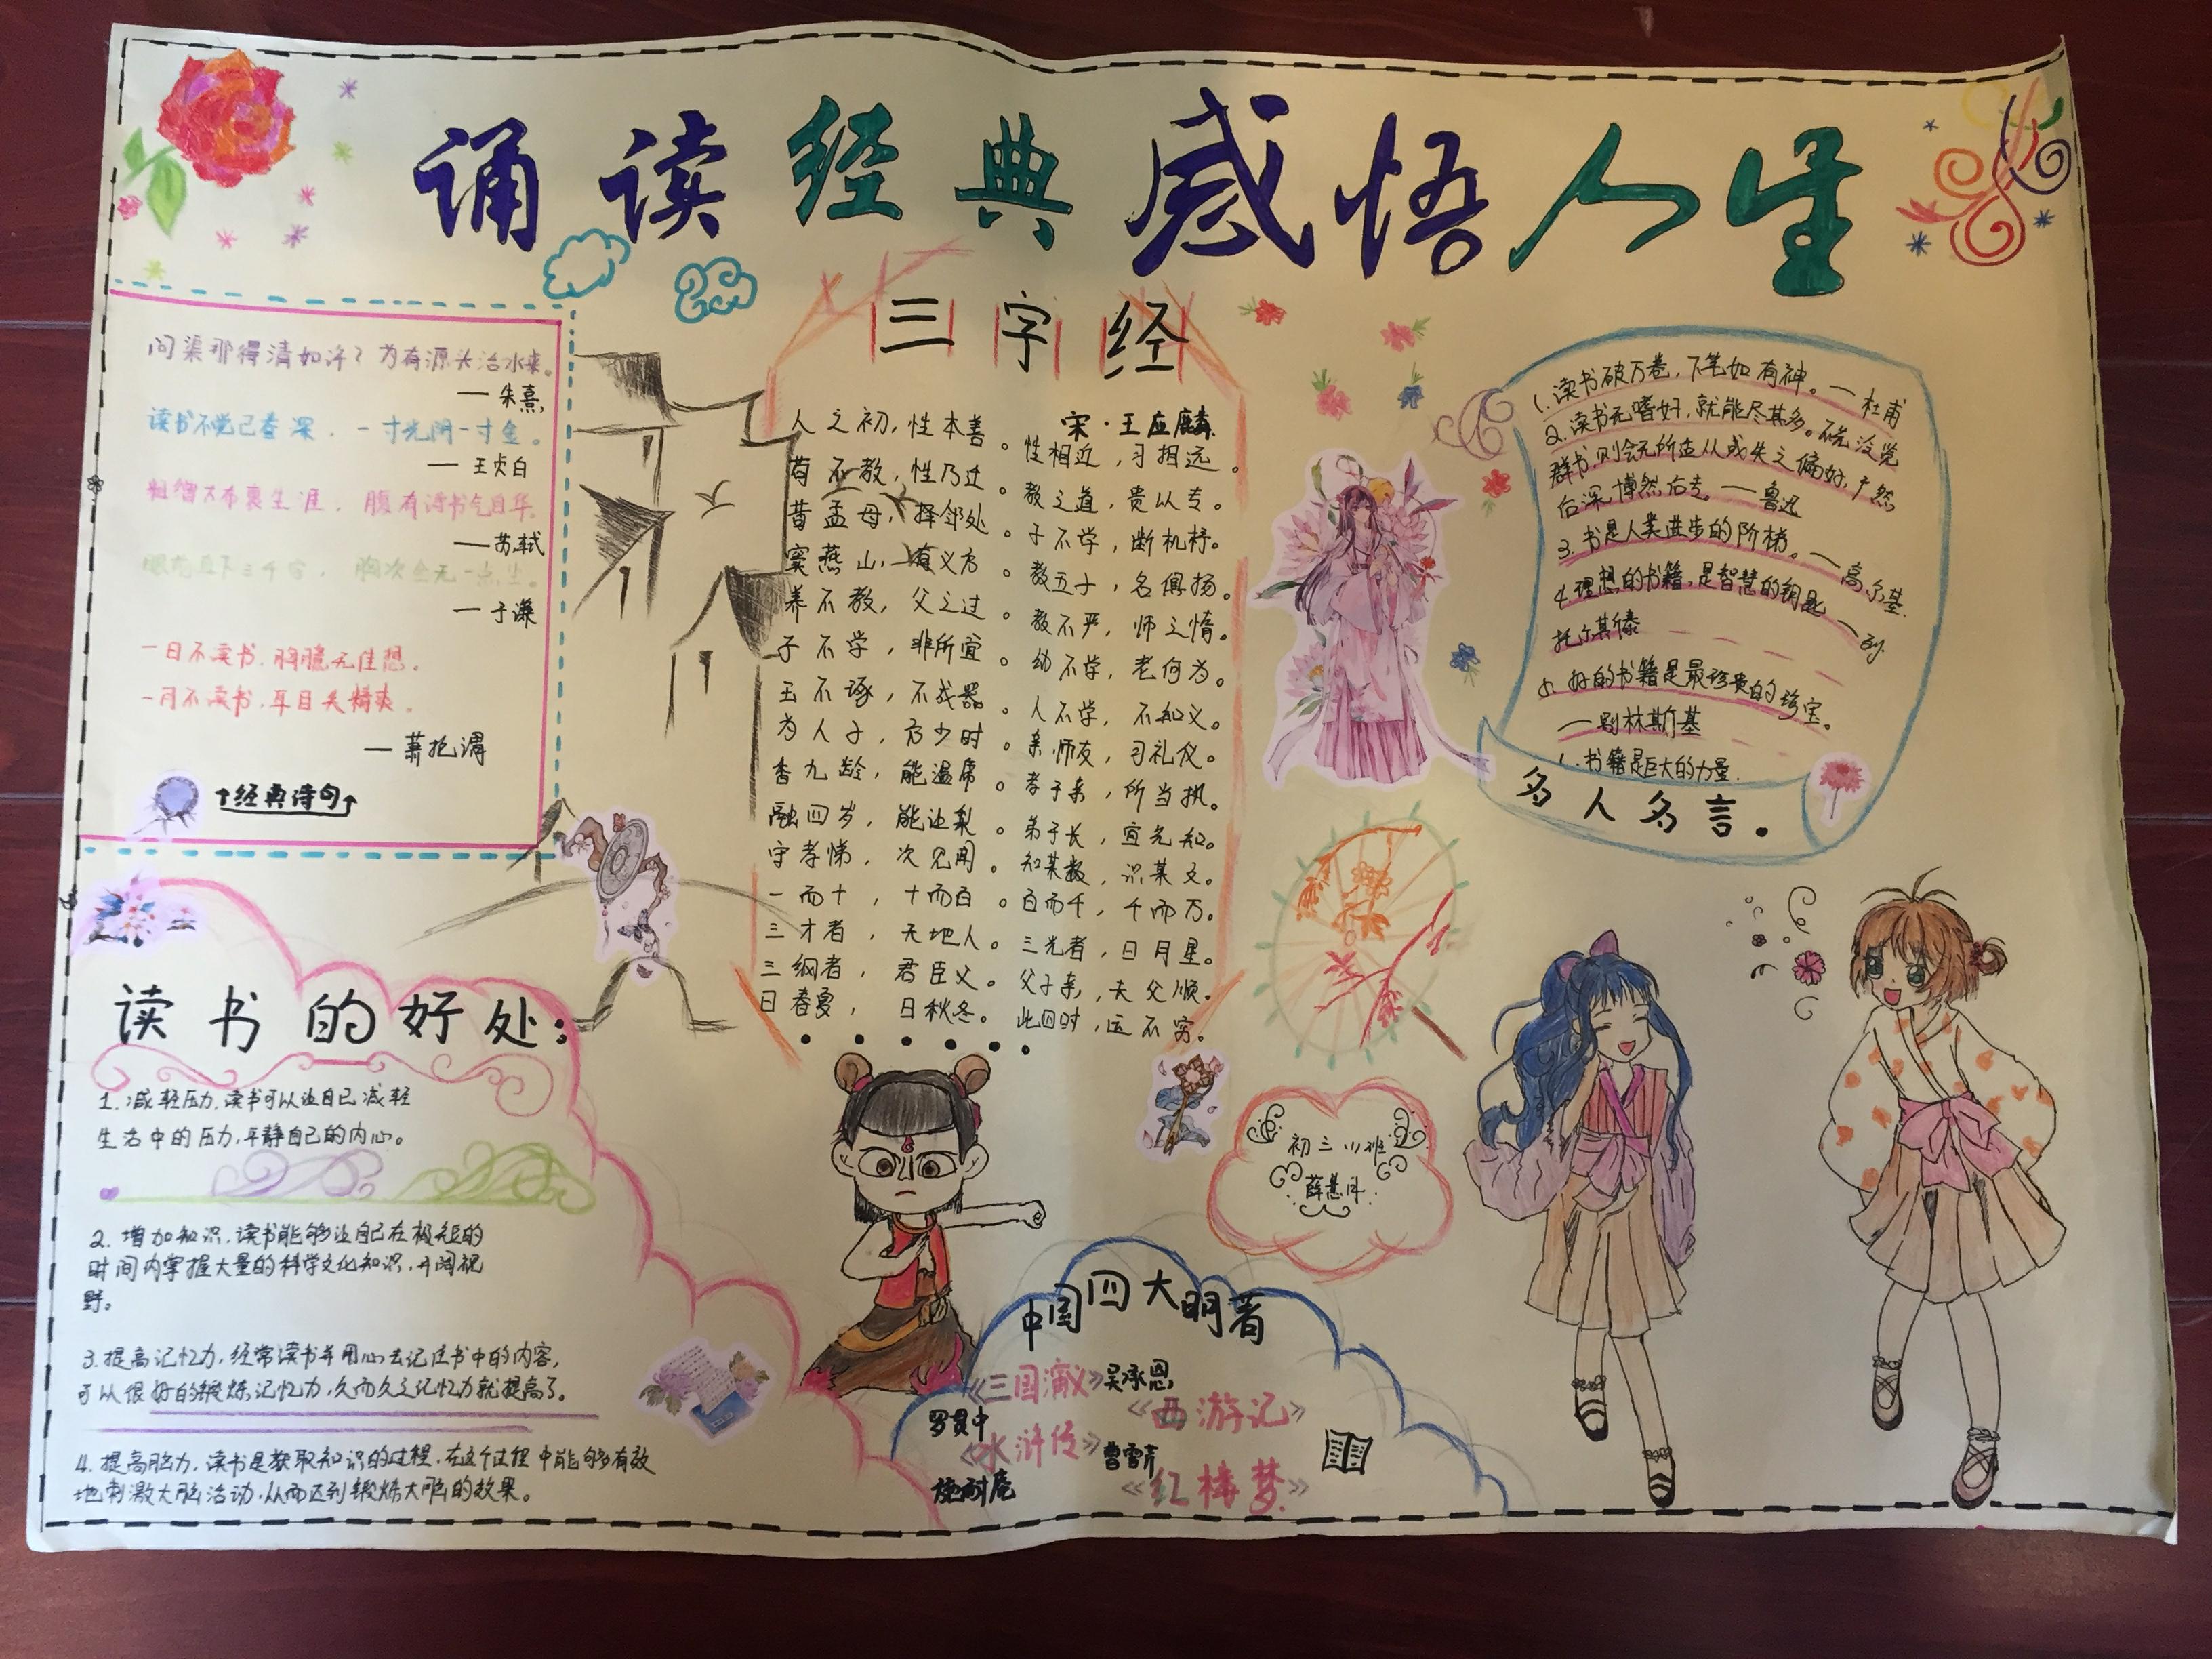 诵读经典感悟人生
问渠那得清如许?为有源头活水来。
—朱熹
读书不觉已春深,一寸光阴一寸金。
—王贞白
粗缯大布裹生涯,腹有诗书气自华。
—苏轼
眼前直下三千字,胸次全无一点尘。
—于谦
一日不读书,胸臆无佳想。
一月不读书,耳目失精爽。
—萧抡谓
↑经典诗句↑
读书的好处:
1.减轻压力,读书可以让自己减轻
生活中的压力,平静自己的内心。
2.增加知识,读书能够让自己在极短的
时间内掌握大量的科学文化知识,开阔视
野。
3.提高记忆力,经常读书并用心去记住书中的内容,
可以很好的锻炼记忆力,久而久之记忆力就提高了。
4.提高脑力,读书是获取知识的过程,在这个过程中能够多有效
地刺激大脑活动,从而达到锻炼大脑的效果。
三字经
宋·王应麟
人之初,性本善。性相近,习相远。
苟不教,性乃迁。教之道,贵以专。
昔孟母,择邻处。子不学,断机杼。
窦燕山,有义方。教五子,名俱扬。
养不教,父之过。教不严,师之惰。
子不学,非所宜。幼不学,老何为。
玉不琢,不成器。人不学,不知义。
为人子,方少时。亲师友,习礼仪。
香九龄,能温席。孝于亲,所当执。
融四岁,能让梨。弟于长,宜先知。
守孝悌,次见闻。知某数,识某文。
一而十,十而百。百而千,千而万。
三才者,天地人。三光者,日月星。
三纲者,君臣义。父子亲,夫妇顺。
曰春夏,曰秋冬。此四时,运不穷。
• • • • • •
1.读书破万卷,下笔如有神。—杜甫
2.读书无嗜好,就能尽其多。不先泛览
群书,则会无所适从或失之偏好,广然
后深,博然后专。—鲁迅
3.书是人类进步的阶梯。—高尔基
4.理想的书籍,是智慧的钥匙—列
夫托尔斯泰
5.好的书籍是最珍贵的珍宝。
—别林斯基
书籍是巨大的力量.
名人名言。
初三
班
薛慧
中国四大明著
《三国演义》吴承恩
罗贯中《西游记》
《水浒传》曹雪芹
施耐庵《红楼梦》